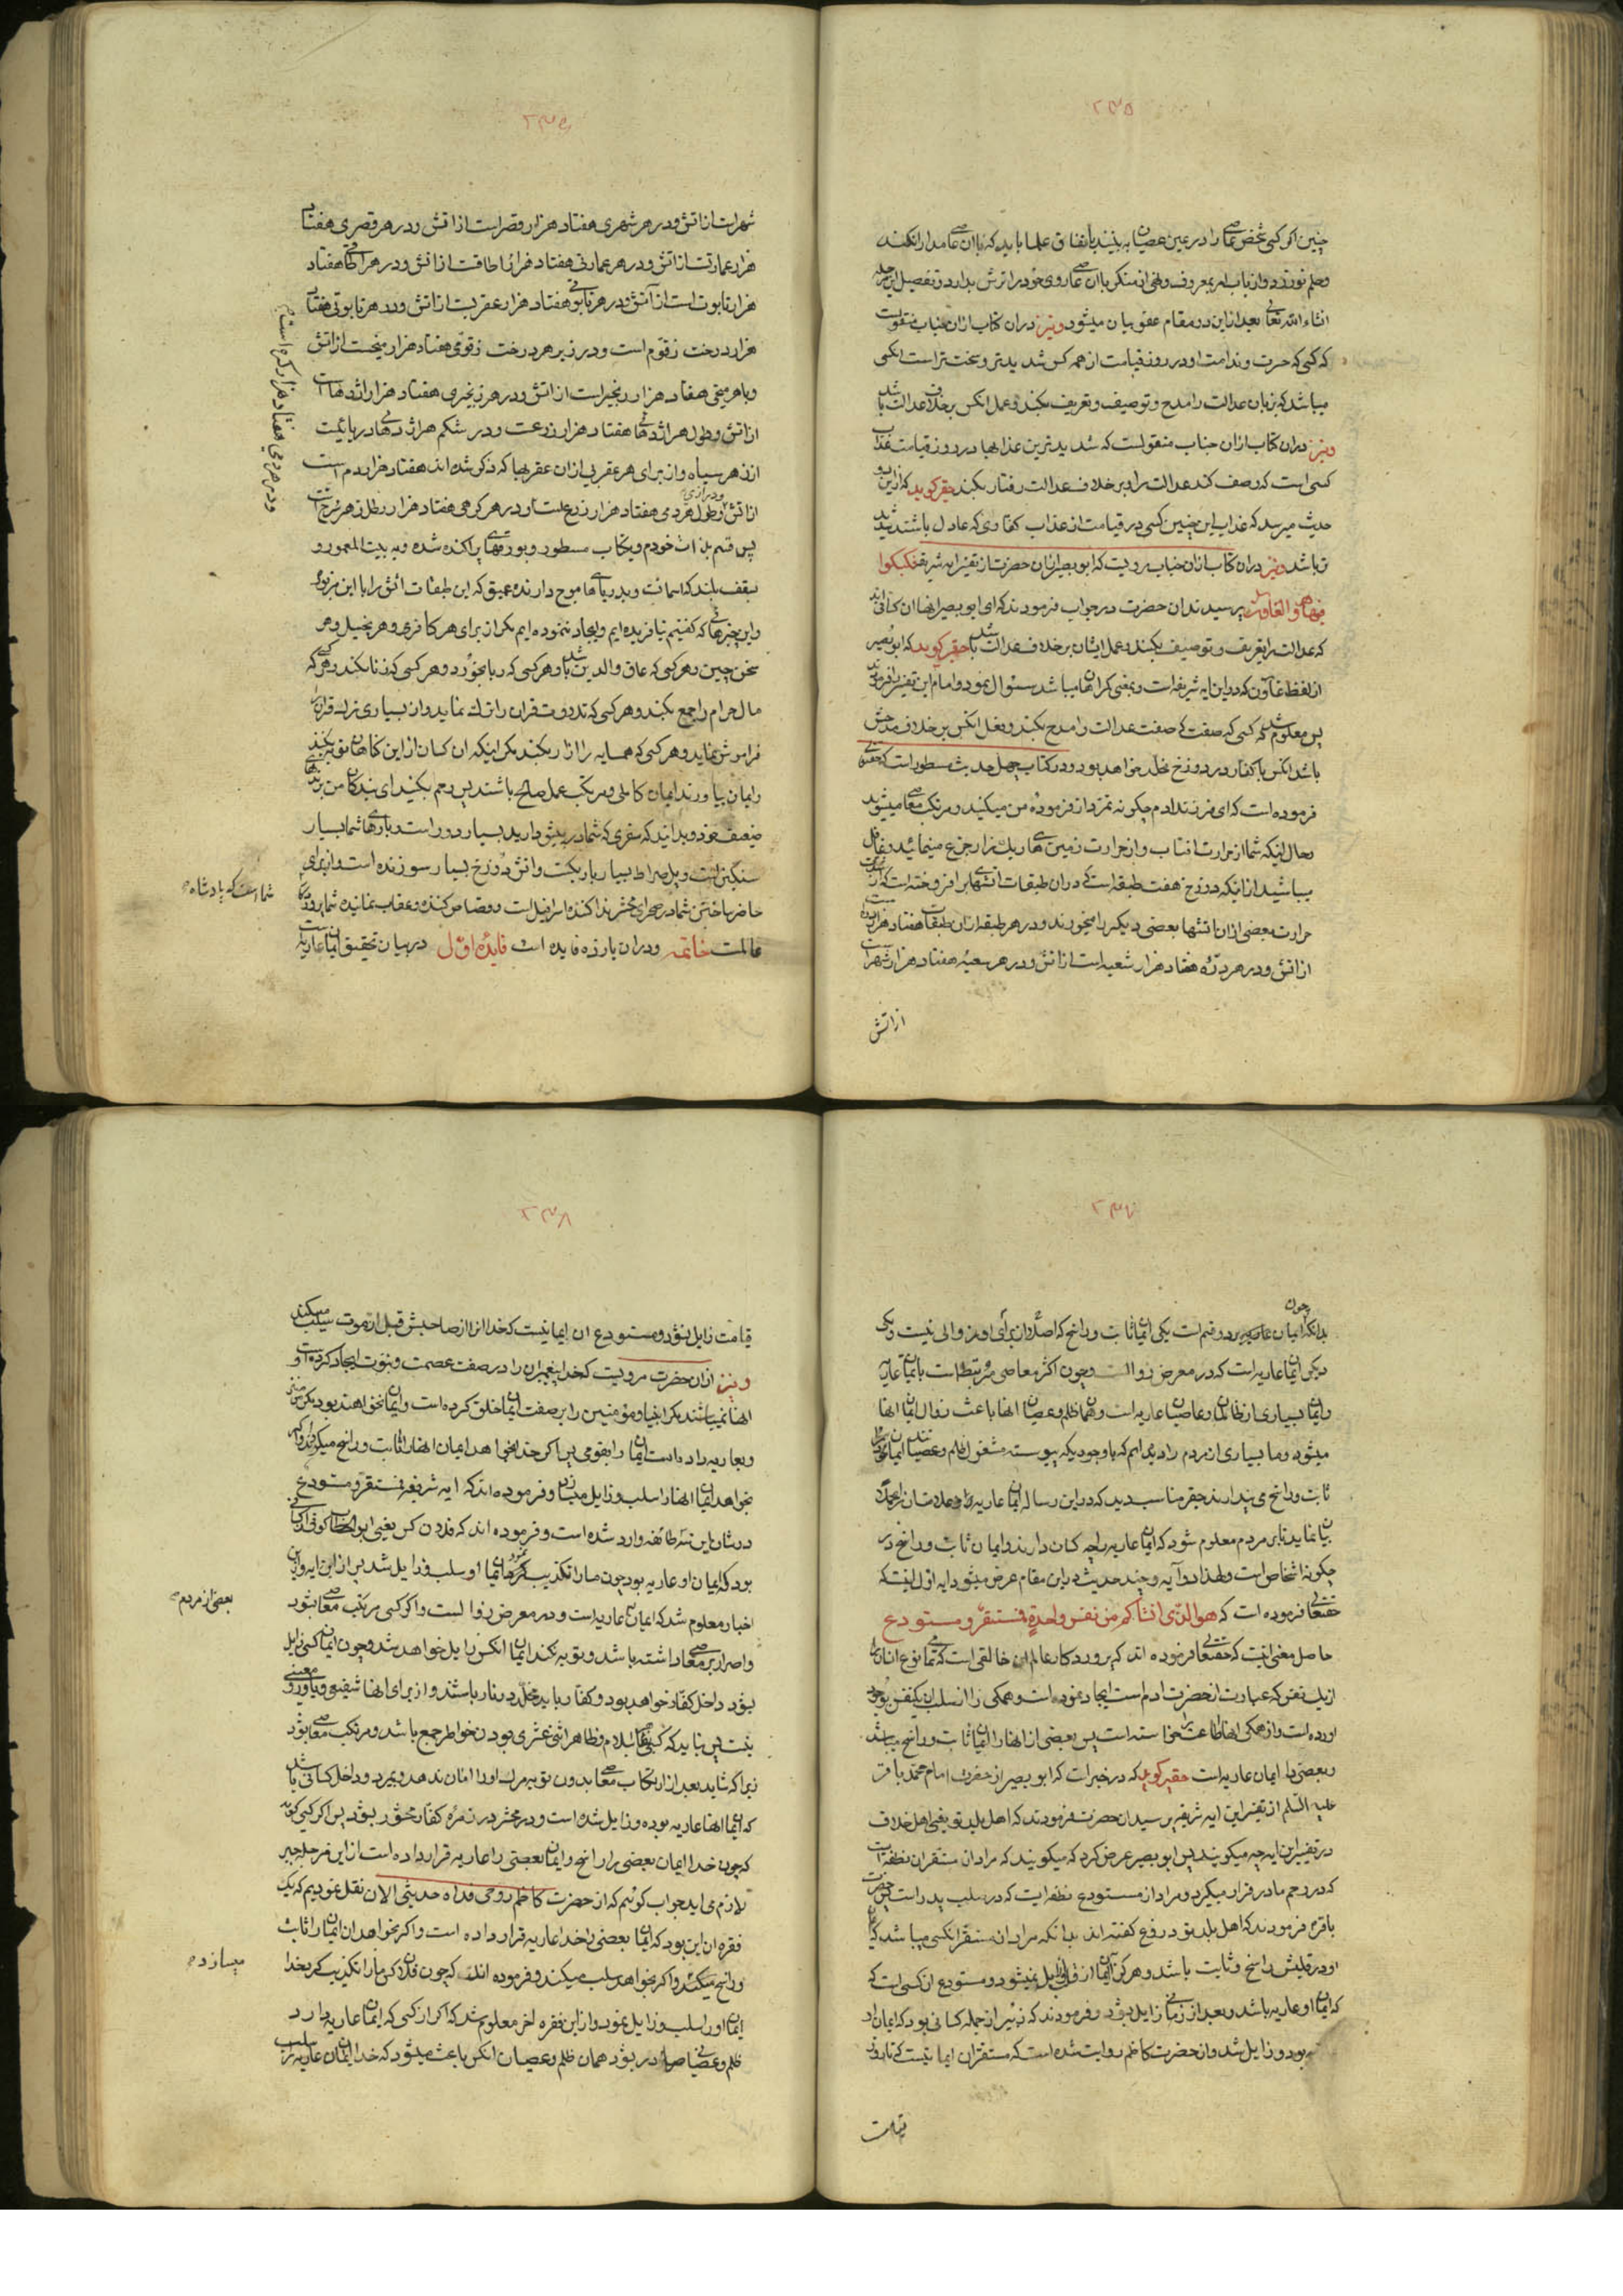 ۲۳۵
چنین اگر کسی شخص عاصی را در عین عصیان به بیند باتفاق علما باید که با ان عاصی مدارا نکند
و ظلم نورزد و از باب امر بمعروف و نهی از منکر با ان عاصی روی خود را ترش بدارد و تفصیل این جمله
انشاء الله تعالی بعد از این در مقام عفو بیان میشود و نیز در ان کتاب از ان جناب منقولست
که کسی که حسرت و ندامت او در روز قیامت از همه کس شدیدتر و سخت تر است انکسی
میباشد که زبان عدالت را مدح و توصیف و تعریف بکند و عمل انکس بر خلاف عدالت باشد
و نیز در ان کتاب از ان جناب منقولست که شدیدترین عذابها در روز قیامت عذاب
کسی است که وصف کند عدالت را و بر خلاف عدالت رفتار بکند حقیر گوید که از این دو
حدیث میرسد که عذاب این چنین کسی در قیامت از عذاب کفاری که عادل باشند شدید
تر باشد و نیز در ان کتاب از ان جناب مرویست که ابو بصیر از ان حضرت از تفسیر ایه شریفه فکبکبوا
فیها هم و الغاون پرسید ند ان حضرت در جواب فرمودند که ای ابو بصیر انها ان کسانی اند
که عدالت را تعریف و توصیف بکنند و عمل ایشان بر خلاف عدالت باشد حقیر گوید که ابو بصیر
از لفظ غاون که در این ایه شریفه است و بمعنی گمراهان میباشد سئوال نمود و امام این تفسیر فرمودند
پس معلوم شد که کسی که صفت عدالت را مدح بکند و فعل انکس بر خلاف مدحش
باشد انکس با کفار در دوزخ مخلد خواهد بود و در کتاب چهل حدیث مسطور است که حقتعالی
فرموده است که ای فرزند ادم چگونه تمرد از فرموده من میکنید و مرتکب معاصی میشوید
و حال اینکه شما از حرارت افتاب و از حرارت زمین های ریک زار جزع مینمائید و غافل
میباشید از انکه دوزخ هفت طبقه است که در ان طبقات اتشهای بر افروخته است که از شدت
حرارت بعضی از ان اتشها بعضی دیگر را میخورند و در هر طبقه از ان طبقات هفتاد هزار دره است
از اتش و در هر درّه هفتاد هزار شعبه است از اتش و در هر شعبه هفتاد هزار شهر است
از اتش
شهر است از اتش و در هر شهری هفتاد هزار قصر است از اتش و در هر قصری هفتاد
هزار عمارت از اتش و در هر عمارتی هفتاد هزار اطاقت از اتش و در هر اطاقی هفتاد
هزار تابوت است از آتش و در هر تابوتی هفتاد هزار عقرب است از اتش و در هر تابوتی هفتاد
هزار درخت زقّوم است و در زیر هر درخت زقومی هفتاد هزار میخست از اتش
و با هر میخی هفتاد هزار زنجیر است از اتش و در هر زنجیری هفتاد هزار اژدها است
از اتش و طول هر اژدهای هفتاد هزار زرعست و در شکم هر اژدهای دریائیست
از زهر سیاه و از برای هر عقربی از ان عقربها که ذکر شده اند هفتاد هزار دم است
از اتش و درازی و طول هر دمی هفتاد هزار زرع است و در هر گرهی هفتاد هزار رطل زهر سرخ است
و در هر دمی هفتاد هزار گره است
پس قسم بذات خودم و بکتاب مسطور و بورقهای پراکنده شده و به بیت المعمور و
بسقف بلند که اسمانست و بدریاهای موج دارنده عمیق که این طبقات اتش را با این مزبوره
و این چیزهائی که گفتیم نیافریده ایم و ایجاد ننموده ایم مگر از برای هر کافری و هر بخیل و هر
سخن چین و هر کسی که عاق والدین باشد و هر کسی که ربا بخورد و هر کسی که زنا بکند و هر کسی که
مال حرام را جمع بکند و هر کسی که تلاوت قران را ترک نماید و از بسیاری ترک قران را
فراموش نماید و هر کسی که همسایه را ازار بکند مگر اینکه ان کسان از این گناهان توبه بکنند
و ایمان بیاورند ایمان کاملی و مرتکب عمل صالح باشند پس رحم بکنید ای بندگان من بر نفسهای
ضعیف خود و بدانید که سفری که شما در پیش دارید بسیار دور است و بارهای شما بسیار
سنگین است و پل صراط بسیار باریکست و اتش دوزخ بسیار سوزنده است و از برای
حاضر ساختن شما در صحرای محشر ندا کننده اسرافیل است و قصاص کننده و عقاب نماینده شما پروردگار
شما است که پادشاه
عالمست خاتمه و در ان یازده فایده است فایدۀ اوّل در بیان تحقیق ایمان عاریه است
بدانکه چون ایمان بر دو قسم است یکی ایمان ثابت و راسخ که اصلا از برای او زوالی نیست و یکی
دیگر ایمان عاریه است که در معرض زوالست و چون اکثر معاصی مرتبط است بایمان عاریه
و ایمان بسیاری از ظالمان و عاصیان عاریه است و همان ظلم و عصیان انها باعث زوال ایمان انها
میشود و ما بسیاری از مردم را دیده ایم که با وجودیکه پیوسته مشغول ظلم و عصیانند ایمان خود را
ثابت و راسخ می پندارند حقیر مناسب دید که در این رساله ایمان عاریه را و علامتان را مجملا
بیان نماید تا بر مردم معلوم شود که ایمان عاریه را چه کسان دارند و ایمان ثابت و راسخ در
چگونه اشخاص است و لهذا دو آیه و چند حدیث در این مقام عرض میشود ایه اوّل اینست که
حقتعالی فرموده است که هو الذی انشأکم من نفس واحدة فمستقر و مستودع
حاصل معنی اینست که حقتعالی فرموده اند که پروردگار عالم ان خالقی است که تمامی نوع انسان را
از یک نفس که عبارت از حضرت ادم است ایجاد نموده است و همگی را از نسل ان یکنفس بوجود
اورده است و از همگی انها اطاعت را خواسته است پس بعضی از انها را ایمان ثابت و راسخ میباشد
و بعضی را ایمان عاریه است حقیر گوید که در خبر است که ابو بصیر از حضرت امام محمد باقر
علیه السلم از تفسیر این ایه شریفه پرسید ان حضرت فرمودند که اهل بلد تو یعنی اهل خلاف
در تفسیر این ایه چه میگویند پس ابو بصیر عرض کرد که میگویند که مراد از مستقر ان نطفه است
که در رحم مادر قرار میگیرد و مراد از مستودع نطفه ایست که در صلب پدر است پس حضرت
باقر فرمودند که اهل بلد تو دروغ گفته اند بدانکه مراد از مستقر انکسی میباشد که ایمان
او در قلبش راسخ و ثابت باشد و هرگز ایمان از قلب او زایل نمیشود و مستودع انکسی است که
که ایمان او عاریه باشد و بعد از زمانی زایل بشود و فرمودند که زبیر از جمله کسانی بود که ایمان او
بود و زایل شد و از حضرت کاظم روایت شده است که مستقر ان ایمانیست که تا روز
قیامت
۲۳۸
قیامت زایل نشود و مستودع ان ایمانیست که خدا انرا از صاحبش قبل از موت سلب میکند
و نیز از ان حضرت مرویست که خدا پیغمبران را در صفت عصمت و نبوت ایجاد کرده است و
انها نمیباشند مگر انبیا و مؤمنین را بر صفت ایمان خلق کرده است و ایمان نخواهند بود مگر مؤمنین
و بعاریه داده است ایمان را بقومی پس اگر خدا بخواهد ایمان انها را ثابت و راسخ میگرداند و اگر
بخواهد ایمان انها را سلب و زایل میسازد و فرموده اند که ایه شریفه فمستقر و مستودع
در شان این سه طائفه وارد شده است و فرموده اند که فلان کس یعنی ابو الخطاب کوفی از کسانی
بود که ایمان او عاریه بود چون ما را تکذیب کرد همان ایمان او سلب و زایل شد پس از این ایه و این
اخبار معلوم شد که ایمان بعضی از مردم عاریه است و در معرض زوالست و اگر کسی مرتکب معاصی بشود
و اصرار بر معاصی داشته باشد و توبه نکند ایمان انکس زایل خواهد شد و چون ایمان کسی زایل
بشود داخل کفار خواهد بود و کفار باید مخلد در نار باشند و از برای انها شفیعی و یاوری و معینی
نیست پس نباید که کسی بمحض اسلام و ظاهر اثنی عشری بودن خواطر جمع باشد و مرتکب معاصی بشود
زیرا که شاید بعد از ارتکاب معاصی بدون توبه مرگ او را امان ندهد و بمیرد و داخل کسانی باشد
که ایمان انها عاریه بوده و زایل شده است و در محشر در زمره کفار محشور بشود پس اگر کسی گوید
که چون خدا ایمان بعضی را راسخ و ایمان بعضی را عاریه قرار داده است از این مرحله جبر
لازم می اید جواب گوئیم که از حضرت کاظم روحی فداه حدیثی الان نقل نمودیم که یک
فقره ان این بود که ایمان بعضی را خدا عاریه قرار داده است و اگر بخواهد ان ایمان را ثابت
و راسخ میکند و اگر بخواهد سلب میکند و فرموده اند که چون فلان کس ما را تکذیب کرد خدا
میسازد
ایمان او را سلب و زایل نمود و از این فقره اخر معلوم شد که اگر از کسی که ایمان عاریه دارد
ظلم و عصیان صادر بشود همان ظلم و عصیان انکس باعث میشود که خدا ایمان عاریه را سلب